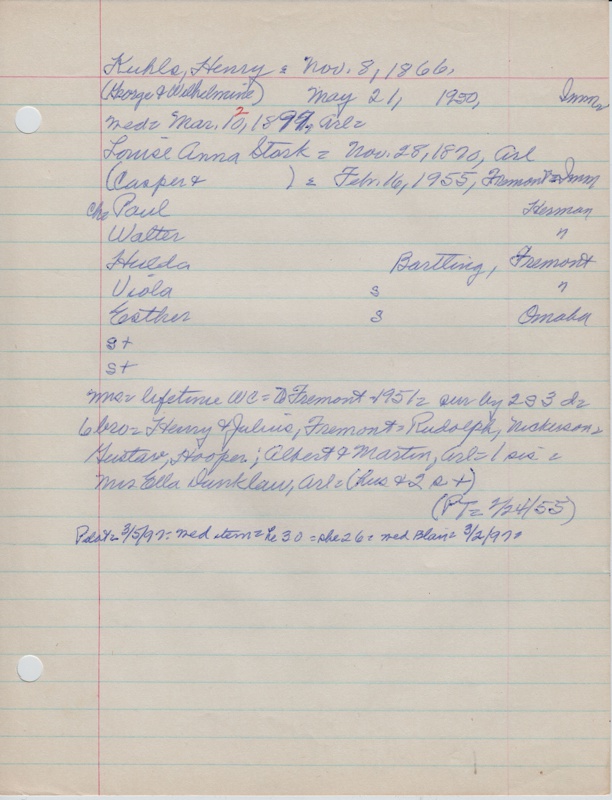 Kuhlo, Henry = Nov. 8, 1866,
(George & Wilhelmine) May 21, 1950, Imm=
wed= Mar. 10, 2 1897, Arl=
Louise Anna Stork = Nov. 28, 1870, Arl
(Casper & ) = Feb. 16, 1955, Fremont= Imm
ch= Paul Herman
Walter "
Hulda Bartling, Fremont
Viola s "
Esther s Omaha
s+
s+
mrs= lifetime WC= to Fremont -1951= sur by 2 s 3 d=
6 bro= Henry & Julius, Fremont= Rudolph, Nickerson=
Gustav, Hooper; Albert & Martin, Arl= 1 sis =
Mrs. Ella Dunklau, Arl= (hus & 2 s +)
(PT= 2/24/55)
Pilot= 3/5/97= wed item= he 30 = she 26 = wed Blair= 3/2/97=